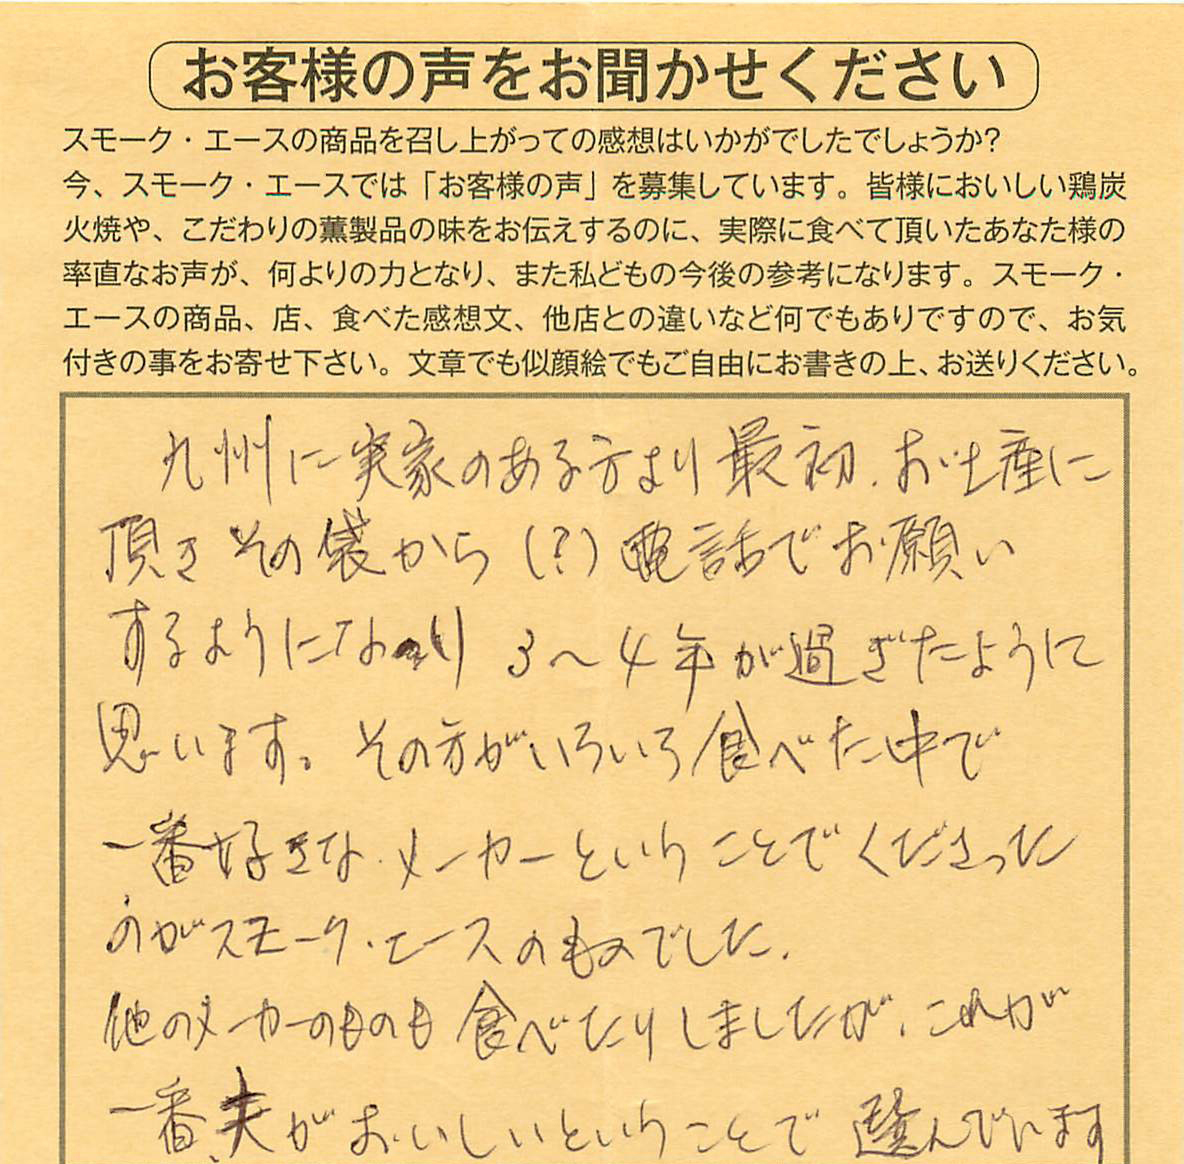 お客様の声をお聞かせください
スモーク・エースの商品を召し上がっての感想はいかがでしたでしょうか?
今、スモーク・エースでは「お客様の声」を募集しています。皆様においしい鶏炭
火焼や、こだわりの薫製品の味をお伝えするのに、実際に食べて頂いたあなた様の
率直なお声が、何よりの力となり、また私どもの今後の参考になります。スモーク・
エースの商品、店、食べた感想文、他店との違いなど何でもありですので、お気
付きの事をお寄せ下さい。文章でも似顔絵でもご自由にお書きの上、お送りください。
九州に実家のある方より最初、お土産に
頂きその袋から(?)電話でお願い
するようになり 3〜4年が過ぎたように
思います。その方がいろいろ食べた中で
一番好きなメーカーということでくださった
のがスモーク・エースのものでした。
他のメーカーのものも食べたりしましたが、これが
一番夫がおいしいということで選んでいます